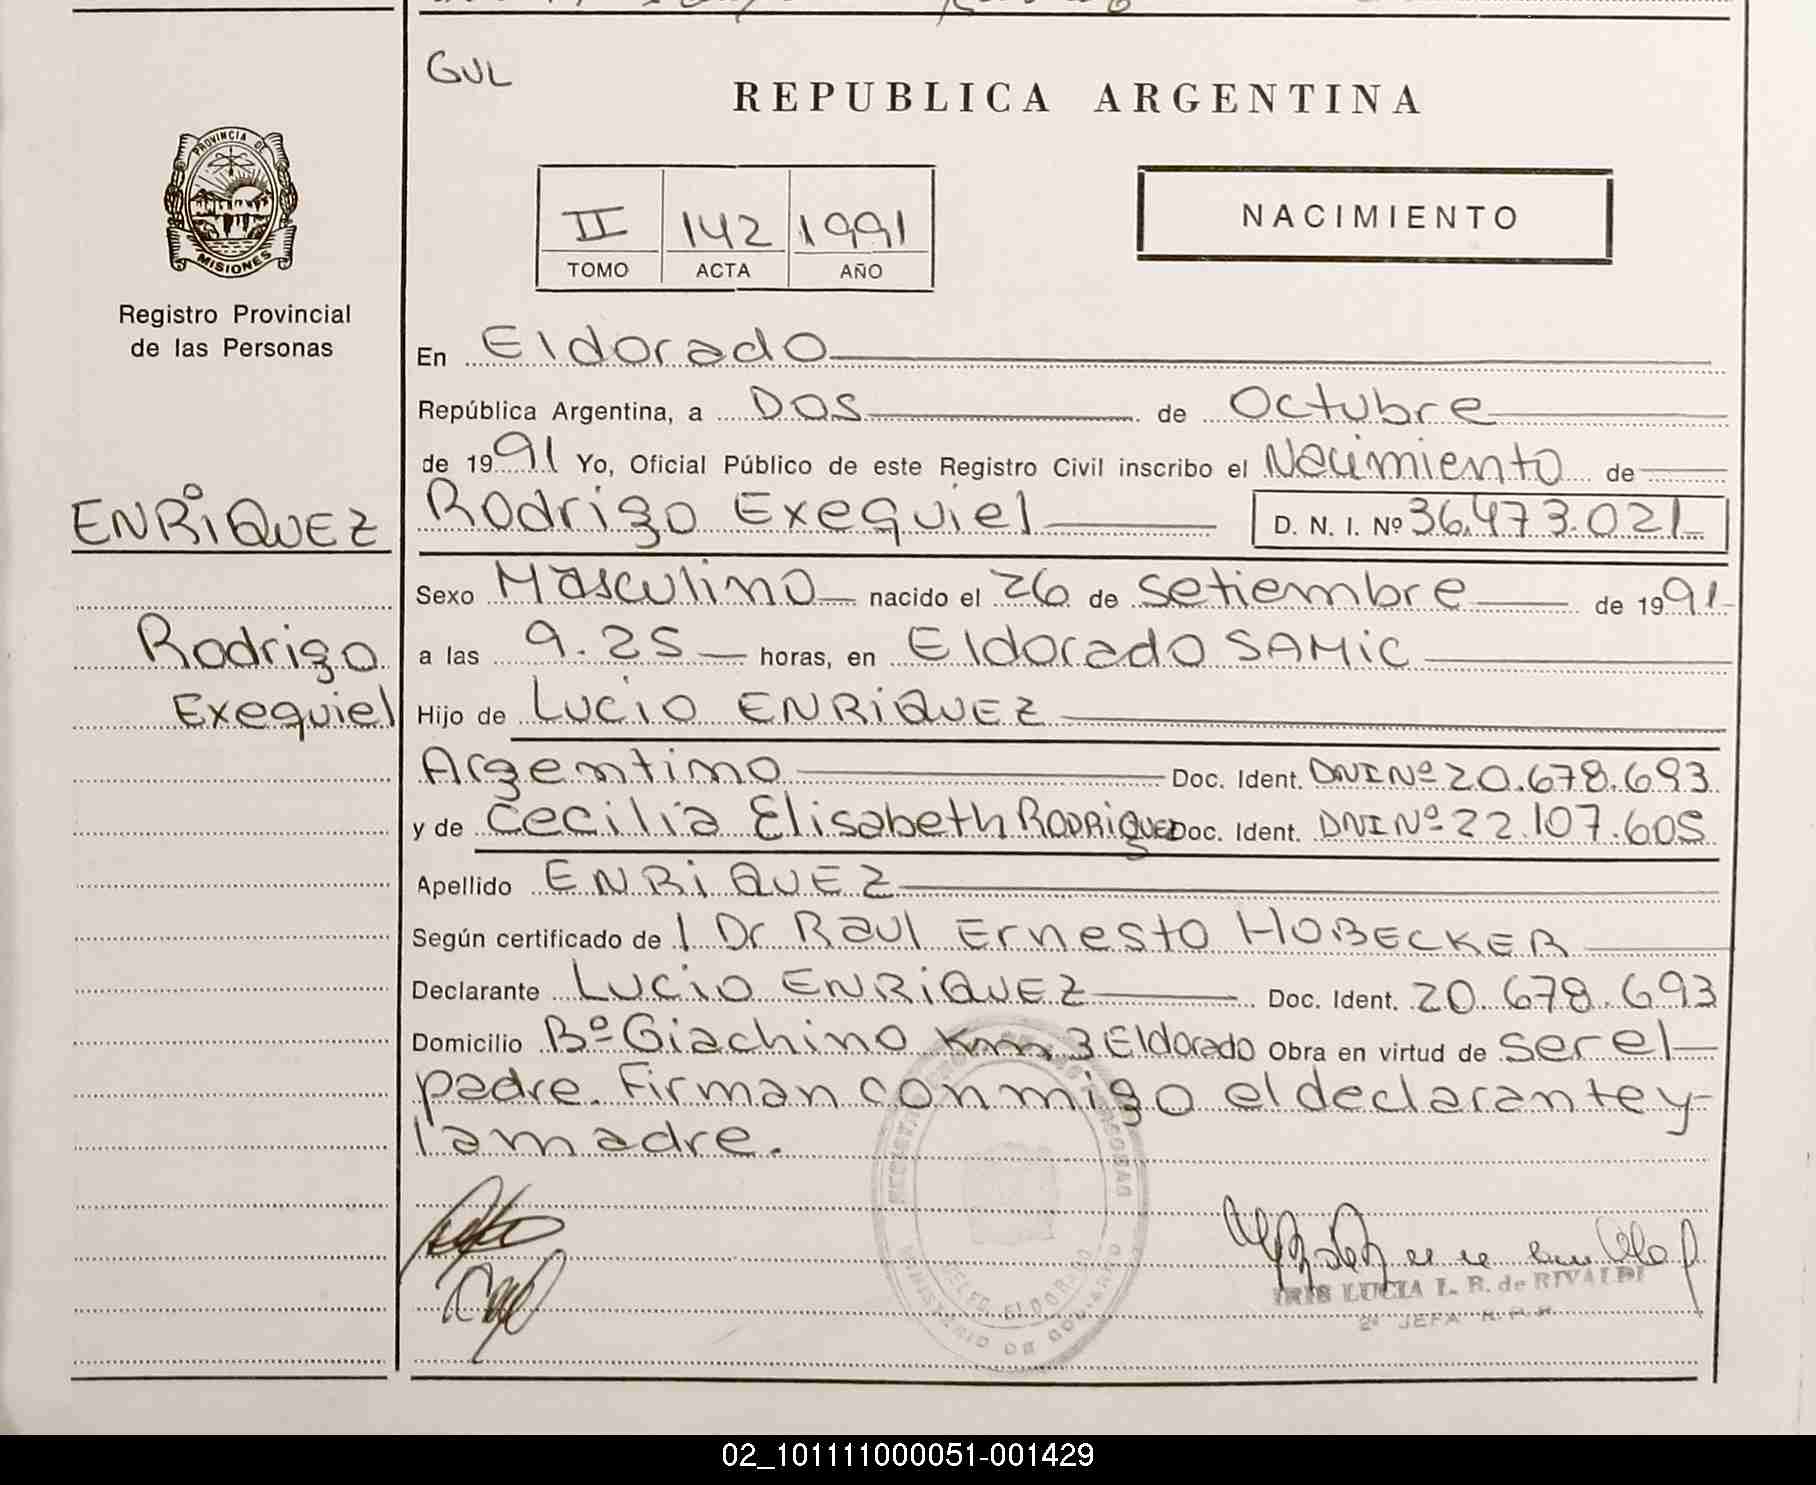 GUL
REPUBLICA ARGENTINA
PROVINCIA DE
MISIONES
Registro Provincial
de las Personas
II 142 1991
TOMO ACTA AÑO
NACIMIENTO
En Eldorado
República Argentina, a DOS de Octubre
de 1991 Yo, Oficial Público de este Registro Civil inscribo el Nacimiento de
ENRIQUEZ
Rodrigo Exequiel D. N. I. Nº 36.473.021
Sexo Masculino nacido el 26 de setiembre de 1991
Rodrigo
Exequiel
a las 9.25 horas, en Eldorado SAMIC
Hijo de Lucio ENRIQUEZ
Argentino Doc. Ident. DNI Nº 20.678.693
y de Cecilia Elisabeth RODRIGUEZ Doc. Ident. DNI Nº 22.107.605
Apellido ENRIQUEZ
Según certificado de l Dr Raul Ernesto HOBECKER
Declarante Lucio ENRIQUEZ Doc. Ident. 20.678.693
Domicilio Bº Giachino Km 3 Eldorado Obra en virtud de ser el
padre. Firman conmigo el declarante y
la madre.
DELEG. ELDORADO
MINISTERIO DE GOBIERNO
IRIS LUCIA L. R. de RIVALDI
2º JEFA R.P.P.
02_101111000051-001429